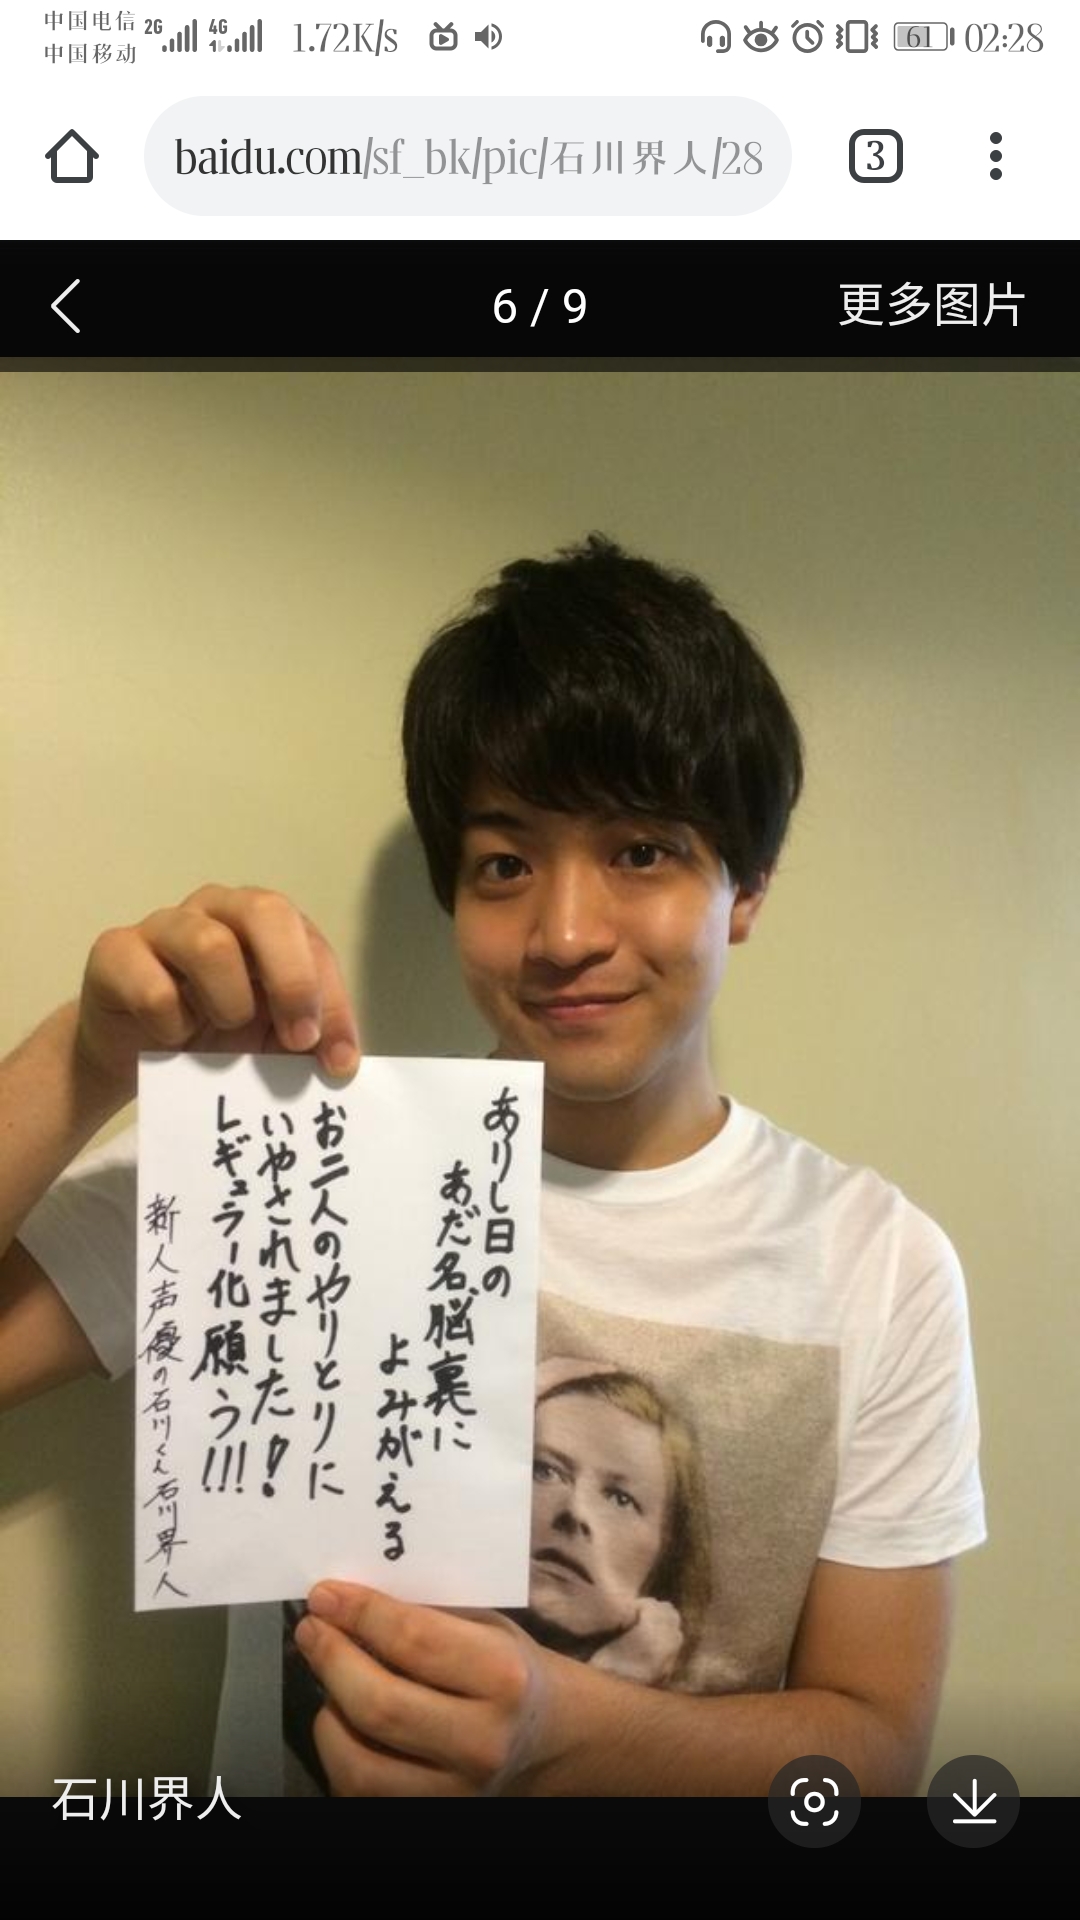 中国电信
中国移动
2G
4G
1.72K/s
61
02:28
baidu.com/sf_bk/pic/石川界人/28
3
6 / 9
更多图片
ありし日の
あだ名、脳裏に
よみがえる
お二人のやりとりに
いやされました!
レギュラー化願う!!!
新人声優の石川くん石川界人
石川界人